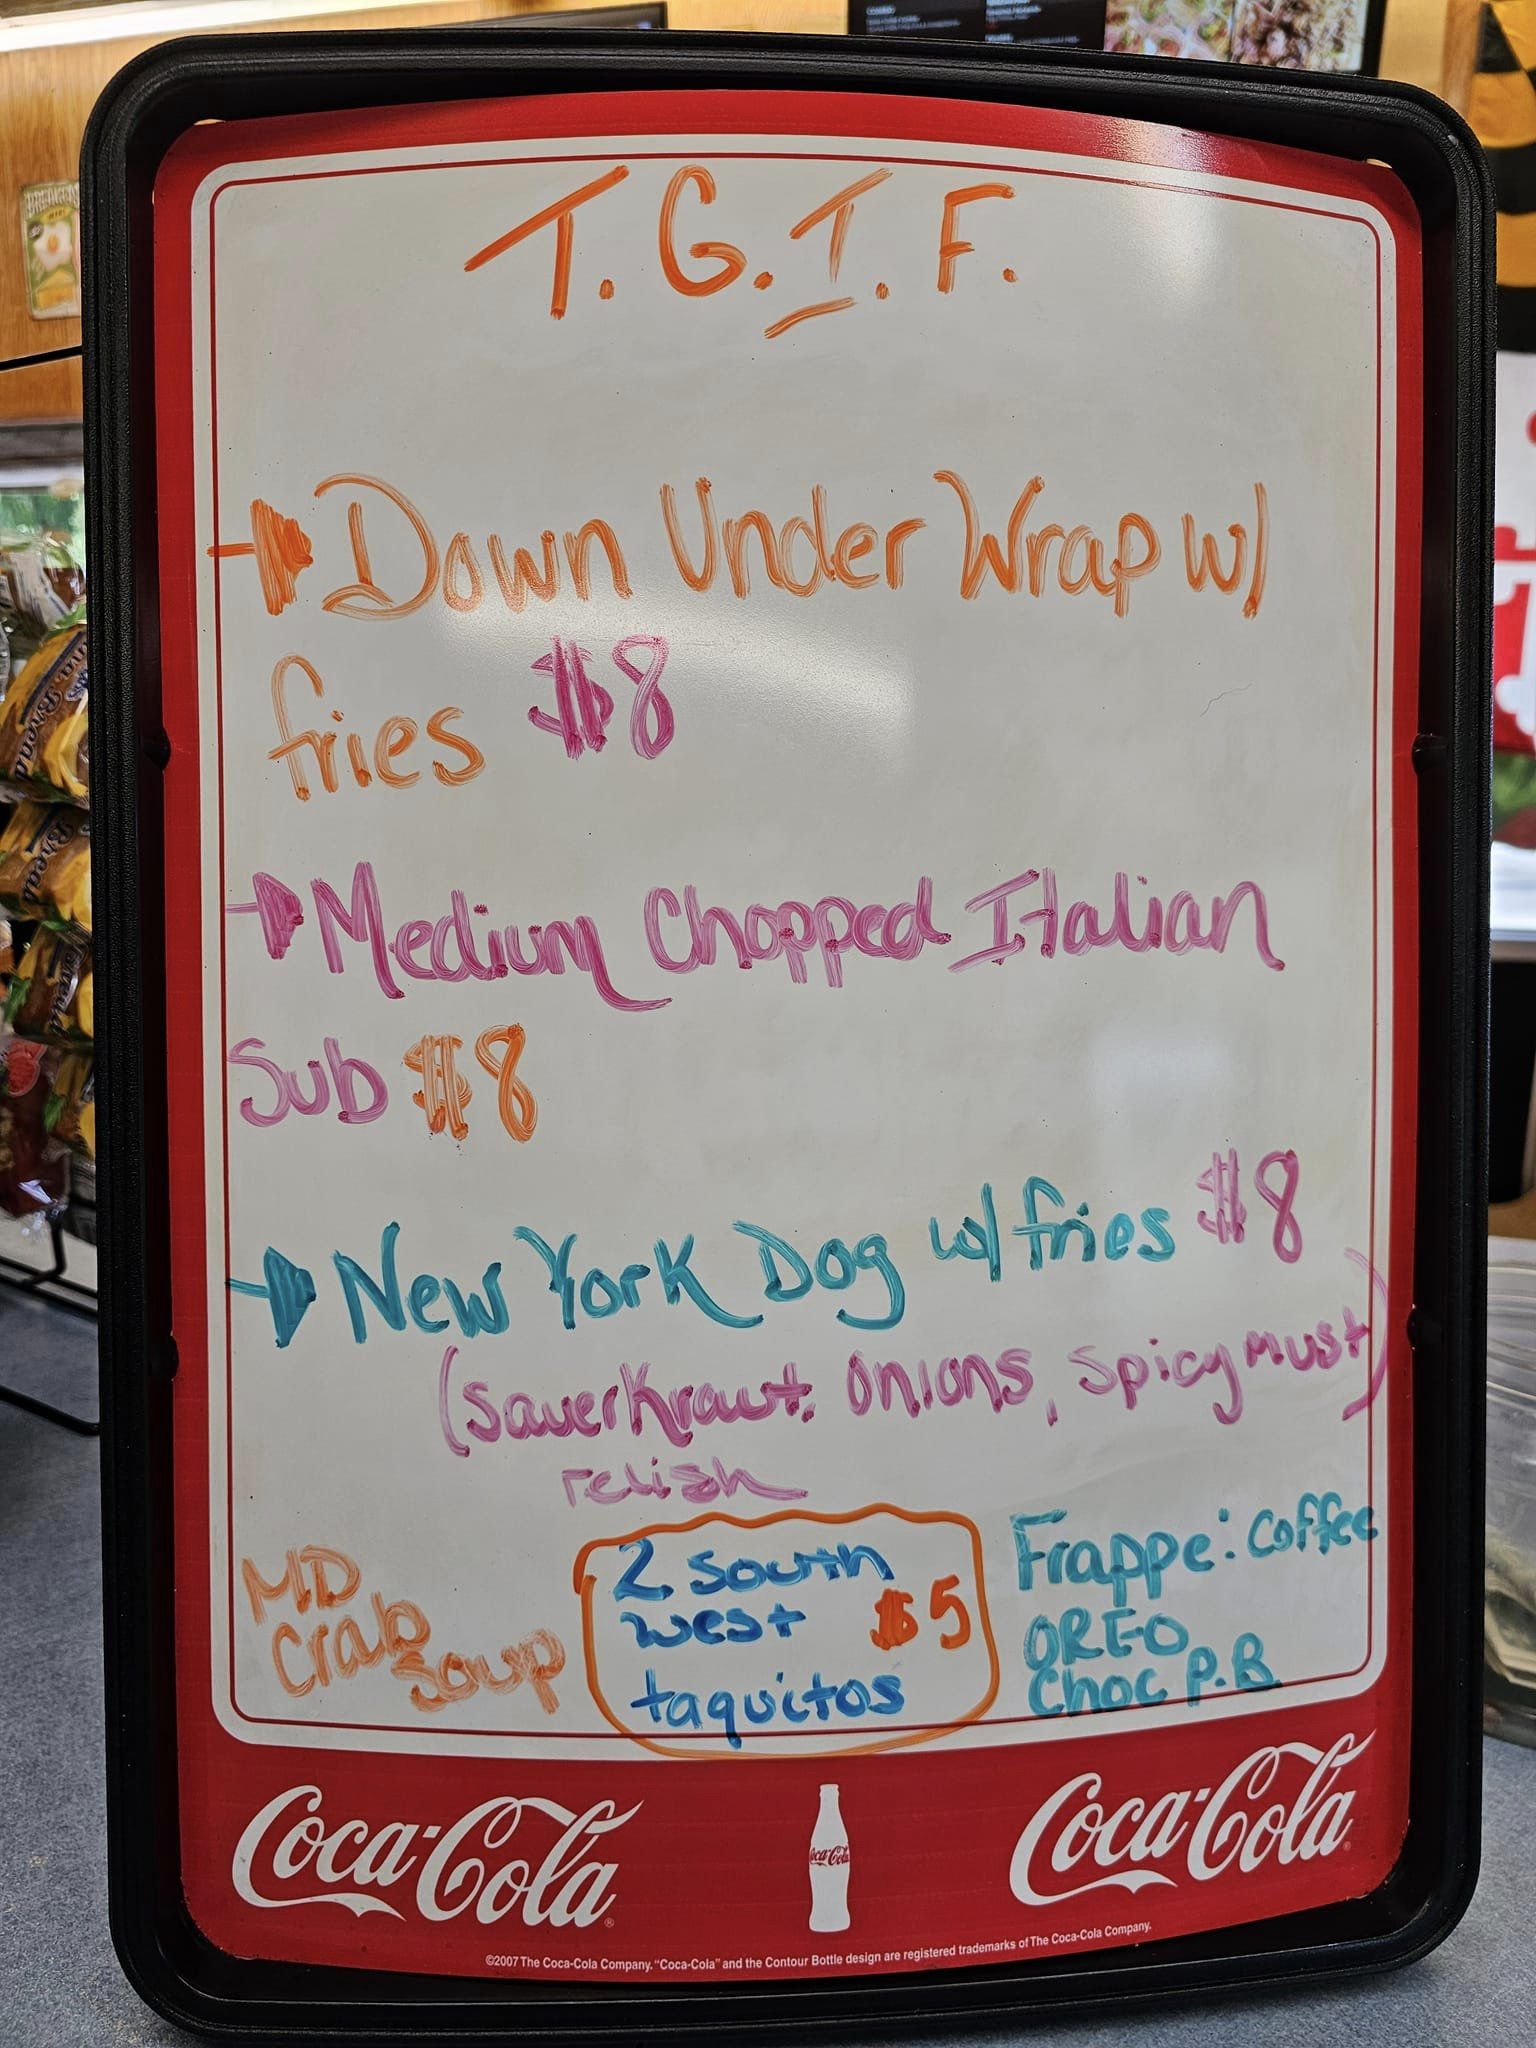 T.G.I.F.
Down Under Wrap w/
fries $8
Medium Chopped Italian
Sub $8
New York Dog w/ fries $8
(Sauerkraut, Onions, Spicy Must)
relish
MD
Crab
Soup
2 South
west $5
taquitos
Frappe: Coffee
OREO
Choc P.B
Coca-Cola
Coca-Cola
Coca-Cola
©2007 The Coca-Cola Company. "Coca-Cola" and the Contour Bottle design are registered trademarks of The Coca-Cola Company.
Bread
Bread